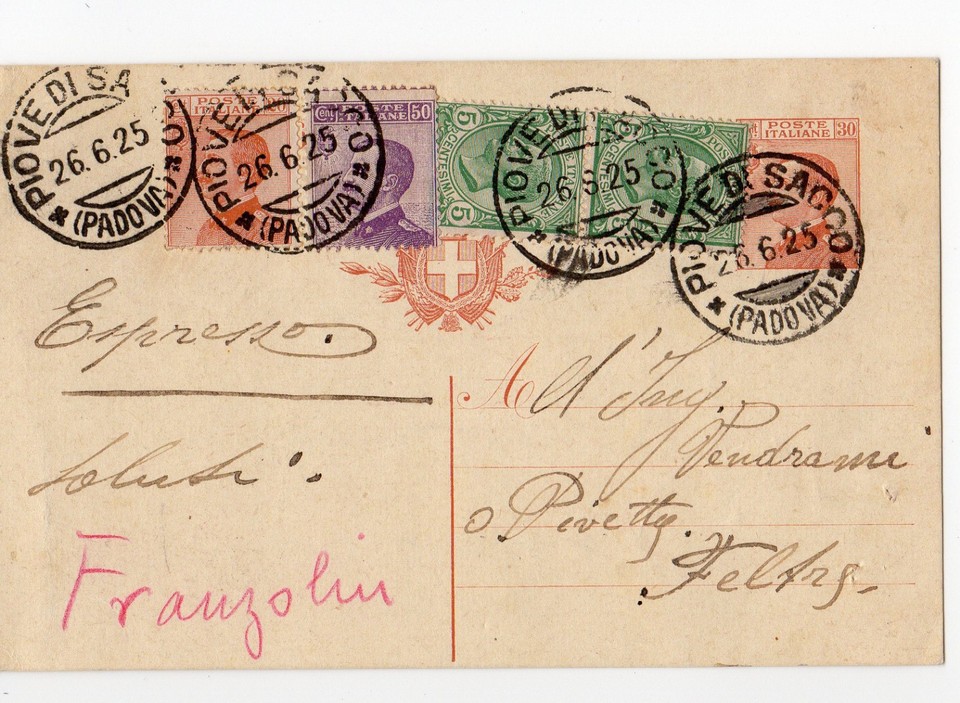 PIOVE DI SA
26.6.25
(PADOVA)
POSTE
ITALIANE
20
PIOVE
26.6.25
(PADOVA)
Cent. POSTE 50
ITALIANE
5 CENTESIMI
5
PIOVE DI
26.6.25
(PADOVA)
5
POSTE
POSTE 30
ITALIANE
PIOVE DI SACCO
26.6.25
(PADOVA)
Espresso.
All' Ing.
Vendrame
Saluti
o Pivetty.
Franzolin
Feltre.